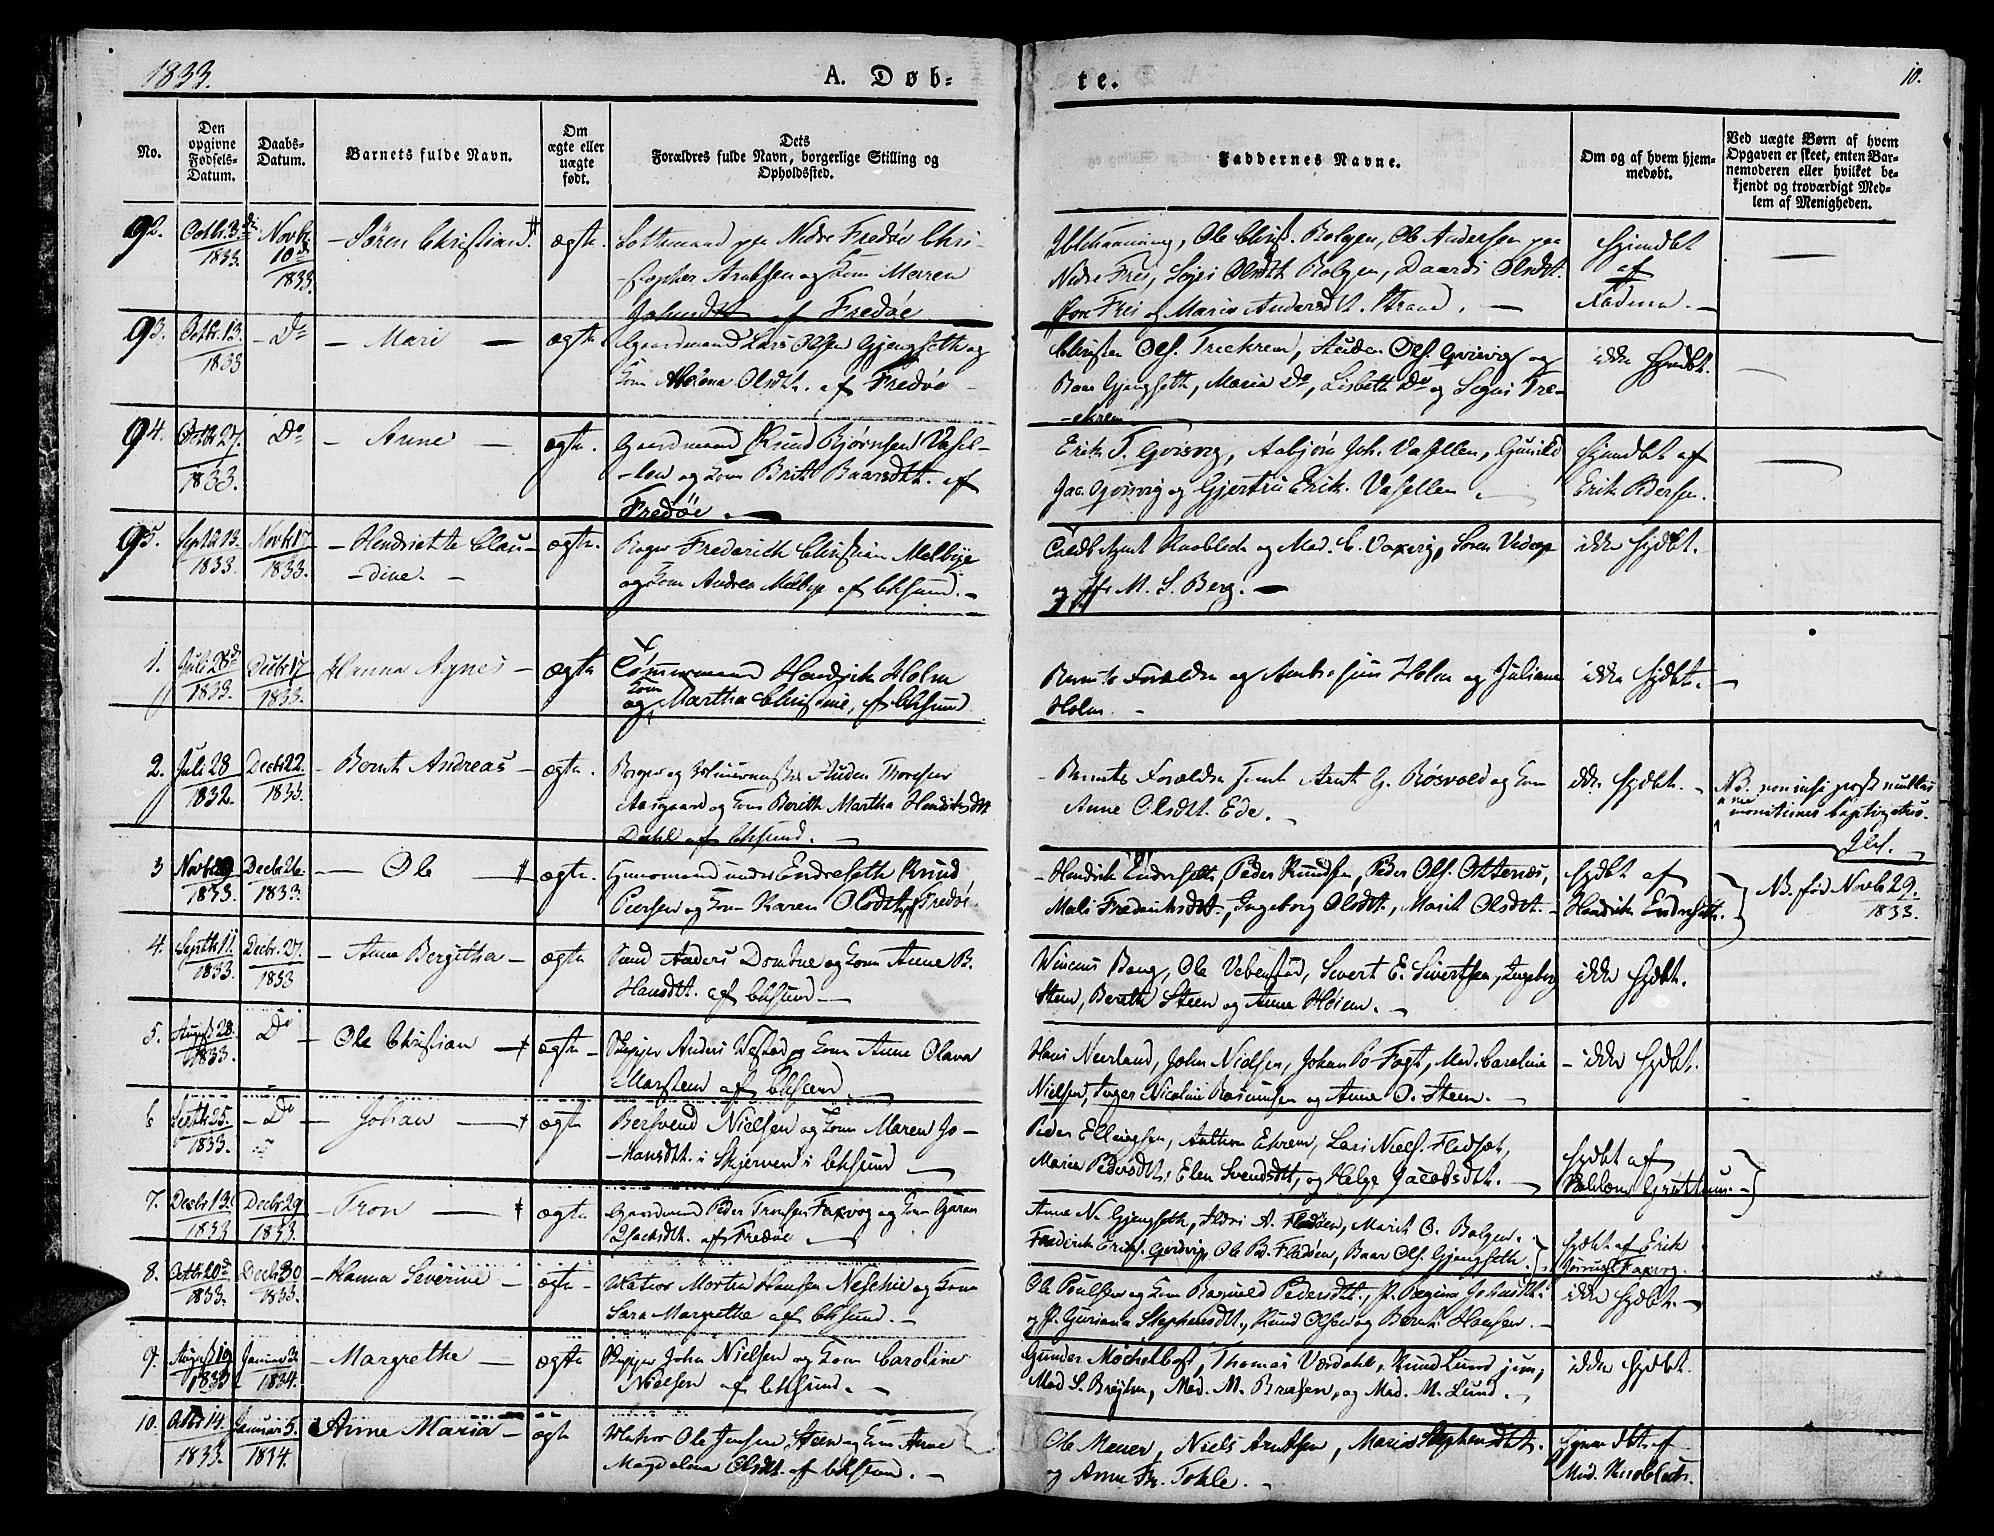 1833.
A. Døb-
te.
10.
No.
Den opgivne Fødsels-Datum.
Daabs-Datum.
Barnets fulde Navn.
Om ægte eller uægte født.
Dets
Forældres fulde Navn, borgerlige Stilling og
Opholdssted.
Faddernes Navne.
Om og af hvem hjem-
medøbt.
Ved uægte Børn af hvem
Opgaven er skeet, enten Bar-
nemoderen eller hvilket be-
kjendt og troværdigt Med-
lem af Menigheden.
92. Octbr. 3die 1833. Novbr. 10 1833. Søren Christian ægte.
paa Nedre Fredøe Chri-
stopher Arntsen og Kone Maren
Johnsdtt af Fredøe
Ole Christ. Bolgen, Ole Andersen paa
Nedre Frei, Olsdtt Bolgen, Olsdtt.
Frei og Maria Andersdtt. Strand.
hjemdbt
af
93. Octbr. 13. 1833 Do Mari ægte.
Gaardmand Lars Olsen Gjengseth og
Kone Olsdtt. af Fredøe
Christen Ols. Treekrem, Ols. Gvisvig og
Baar Gjengseth, Maria Do, Lisbeth Do og Tre-
ekrem
ikke hjdbt.
94. Octbr. 27. 1833. Do Anne ægte.
Gaardmand Knud Bjørnsen Vasel-
len og Kone Britt Baarsdtt. af
Fredøe.
Erik T. Gvisvig, Asbjørn Joh. Vasellen, Gunild
Jac. Gvisvig og Gjertru Erik. Vasellen
hjemdbt af
Erik Pedersen.
95. Septbr. 13. 1833. Novbr. 17 1833. Henriette Clau-
dine. ægte.
Frederich Christian Malbye
og Kone Andrea Malbye af Chsund.
Agent Knobloch og Mad. C. Søren
og M. S. Berg.
ikke hjdbt.
1. Juli 28de 1833. Decbr. 17 1833. Hanna Agnes ægte
Tømmermand Hendrik Holm
og Kone Martha Christine, af Chsund.
Barnets Forældre og Ambrosius Holm og Juliane
Holm.
ikke hjdbt.
2. Juli 28 1832. Decbr. 22. 1833. Bernt Andreas ægte.
Borger og Auden Thoresen
Aasgaard og Kone Berith Martha Hendriksdtt
Dahl af Chsund.
Barnets Forældre samt Arnt G. Røsvold og Kone
Anne Olsdtt. Ede.
ikke hjdbt.
NB. non nisi post multas
monitiones baptizatus.
3 Novbr. 29 1833. Decbr. 26. 1833. Ole ægte.
under Endreseth Knud
Peersen og Kone Karen Olsdtt, af Fredøe
Hendrik Endreseth, Peder Knudsen, Peder Ols. Ottenæs,
Mali Frederiksdtt., Ingeborg Olsdtt., Marit Olsdtt.
hjdbt af
Hendrik Endreseth.
NB. fød Novbr. 29.
1833.
4. Septbr. 11. 1833. Decbr. 27. 1833 Anne Bergitha ægte
Anders Dombue og Kone Anne B.
Hansdtt. af Chsund
Bang, Ole Vebenstad, Sivert E. Sivertsen, Ingeborg
Steen, Berith Steen og Anne Høien.
ikke hjdbt.
5. August 28. 1833. Do Ole Christian ægte
Skipper Anders Wested og Kone Anne Olava
Marstein af Chsund
Hans Neerland, John Nielsen, Johan Po Fogt, Mad. Caroline
Nielsen, Inger Nicoline Rasmusen og Anne O. Steen.
ikke hjdbt.
6 Septbr. 25. 1833. Do Johan ægte
Bersvend Nielsen og Kone Maren Jo-
hansdtt. i Skjerven i Chsund
Peder Ellingsen, Anthon Ekrem, Lars Niels. Fladset,
Maria Pedersdtt., Elen Svendsdtt, og Helge Jacobsdtt.
hjdbt af
7. Decbr. 13. 1833 Decbr. 29 1833. Tron ægte
Gaardmand Peder Tronsen Faxvog og Kone Guren
Isacksdtt. af Fredøe
Anne N. Gjengseth, Sidsi A. Fladøen, Marit O. Bolgen.
Frederik Erichs. Gvisvig, Ole P. Fladsen, Baar Ols. Gjengseth.
hjdbt af Erik
Faxvog.
8. Octbr. 20de 1833. Decbr. 30 1833. Hanna Severine ægte.
Matros Morten Hansen Neschie og Kone
Sara Margrethe af Chsund.
Ole Poulsen og Kone Ragnild Pedersdtt., p. Regina Johnsdtt.
og p. Guriana Stephensdtt., Knud Olsen og Bernt Hansen.
ikke hjdbt.
9. August 19 1833 Januar 3. 1834. Margrethe ægte
Skipper John Nielsen og Kone Caroline
Nielsen af Chsund.
Gunder Møchelbost, Thomas Værdahl, Knud Lund jun,
Mad. S. Mad. M. Brosen, og Mad. M. Lund.
ikke hjdbt.
10. Octbr. 14. 1833. Januar 5. 1834. Anne Maria ægte
Matros Ole Jensen Steen og Kone Anne
Magdalena Olsdtt. af Chsund.
Ole Meyer, Niels Arntsen, Maria Stephensdtt.
og Anne Fr. Tokle.
hjemdbt. af
Mad. Knobloch.